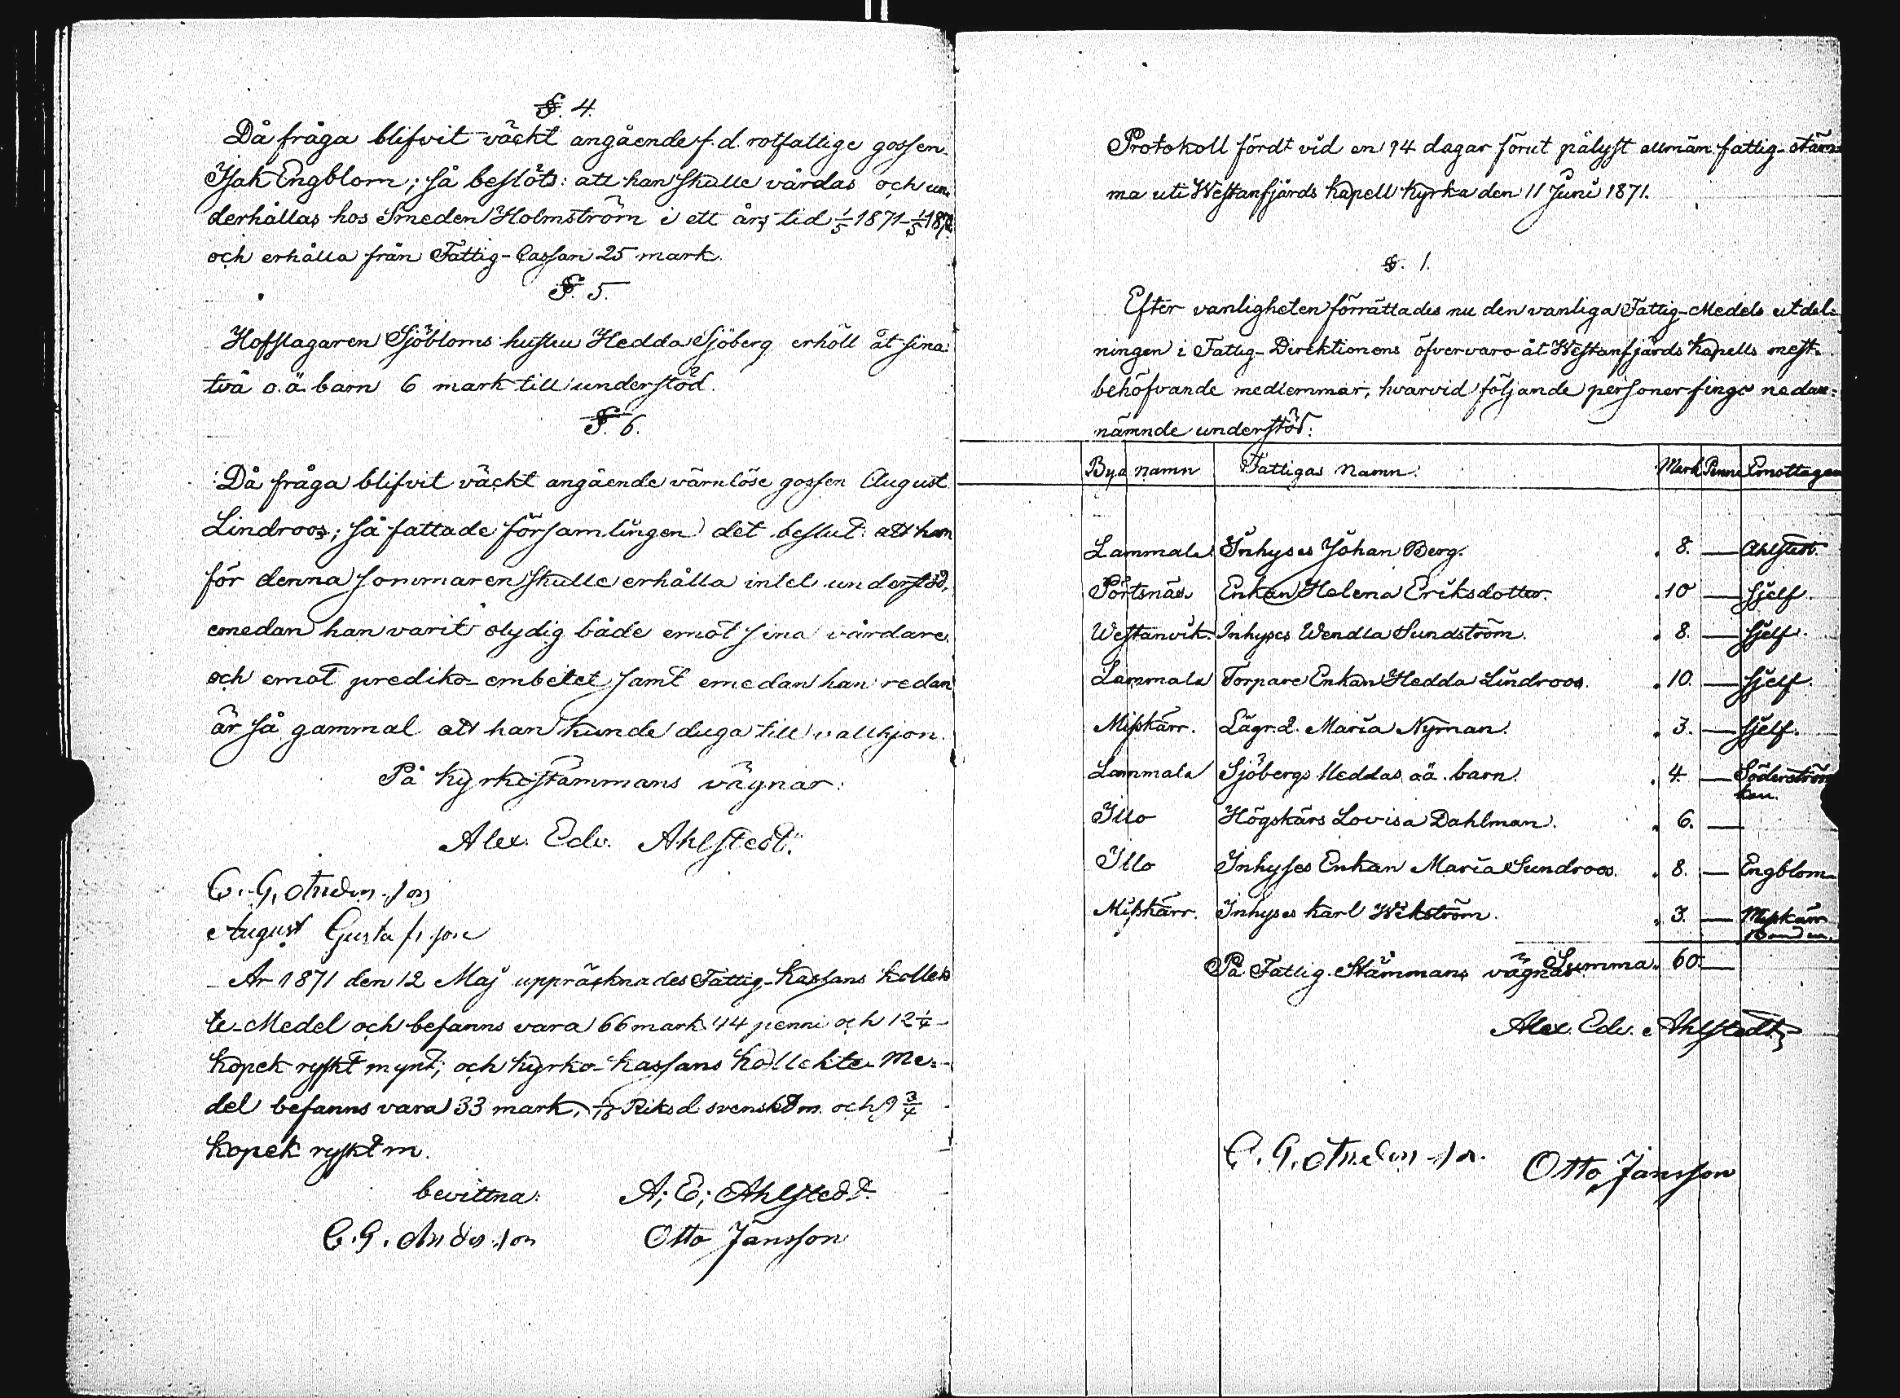 §. 4.
Då fråga blifvit väckt angående f.d. rotfattige gossen
Isak Engblom; så beslöts: att han skulle vårdas och un-
derhållas hos Smeden Holmström i ett års tid 1/5 1871-1/5 1872
och erhålla från Fattig-Cassan 25 mark.
§. 5.
Hofslagaren Sjöbloms hustru Hedda Sjöberg erhöll åt sina
två o.ä. barn 6 mark till understöd.
§. 6.
Då fråga blifvit väckt angående värnlöse gossen August
Lindroos; så fattade församlingen det beslut: att han
för denna sommaren skulle erhålla intet understöd,
emedan han varit olydig både emot sina vårdare
och emot prediko-embetet samt emedan han redan
är så gammal att han kunde duga till vallhjon.
På Kyrkostämmans vägnar:
Alex. Edv. Ahlstedt.
C. G. Anderson
August Gustafsson
År 1871 den 12 Maj uppräknades Fattig-Kassans Kollek-
te-Medel och befanns vara 66 mark 44 penni och 12 1/4
Kopek ryskt mynt; och Kyrko-Kassans Kollekte-Me-
del befanns vara 33 mark, 1/10 Riksd. svenskt m. och 9 3/4
Kopek ryskt m.
bevittna: A; E; Ahlstedt.
C. G. Anderson Otto Jansson
Protokoll fördt vid en 14 dagar förut pålyst allmän fattig-stäm-
ma uti Westanfjärds Kapell Kyrka den 11 Juni 1871.
§. 1.
Efter vanligheten förrättades nu den vanliga Fattig-Medels utdel-
ningen i Fattig-Direktionens öfvervaro åt Westanfjärds Kapells mest
behöfvande medlemmar, hvarvid följande personer fingo nedan-
nämnde understöd:
Bya namn Fattigas Namn. Mark Penni Emottagare
Lammala Inhyses Johan Berg. 8. — Ahlstedt.
Pörtsnäs Enkan Helena Eriksdotter. 10 — sjelf.
Westanvik Inhyses Wendla Sundström. 8. — sjelf.
Lammala Torpare Enkan Hedda Lindroos. 10. — sjelf.
Misskärr. Lägrd. Maria Nyman. 3. — sjelf.
Lammala Sjöbergs Heddas oä. barn. 4. — Söderström
Illo Högskärs Lovisa Dahlman. 6. —
Illo Inhyses Enkan Maria Sundroos. 8. — Engblom
Misskärr. Inhyses Karl Wikström. 3. — Misskärr
Bonden.
På Fattig-Stämmans vägnar: Summa 60. —
Alex. Edv. Ahlstedt
C. G. Anderson Otto Jansson